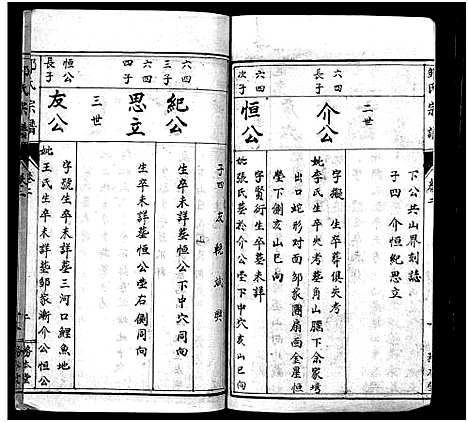 鄒氏宗譜
卷二
下公共山界刻誌
子四 介恒紀思立
二世
六四
長子
介公
字擬 生卒葬俱失考
妣李氏生卒失考葬角山腰下余家塆
出口蛇形对面邹家團扇面金星恒
塋下側亥山巳向
六四
次子
恒公
字賢衍生卒葬未詳
妣張氏葬於介公塋下中穴亥山巳向
子四 友
六四
三子
紀公
生卒未詳葬恒公下中穴同向
六四
四子
思立
生卒未詳葬恒公塋右側同向
三世
恒公
長子
友公
字號生卒未詳葬三河口鯉魚地
妣王氏生卒未詳葬邹家漸介公恒公
宗譜
卷二